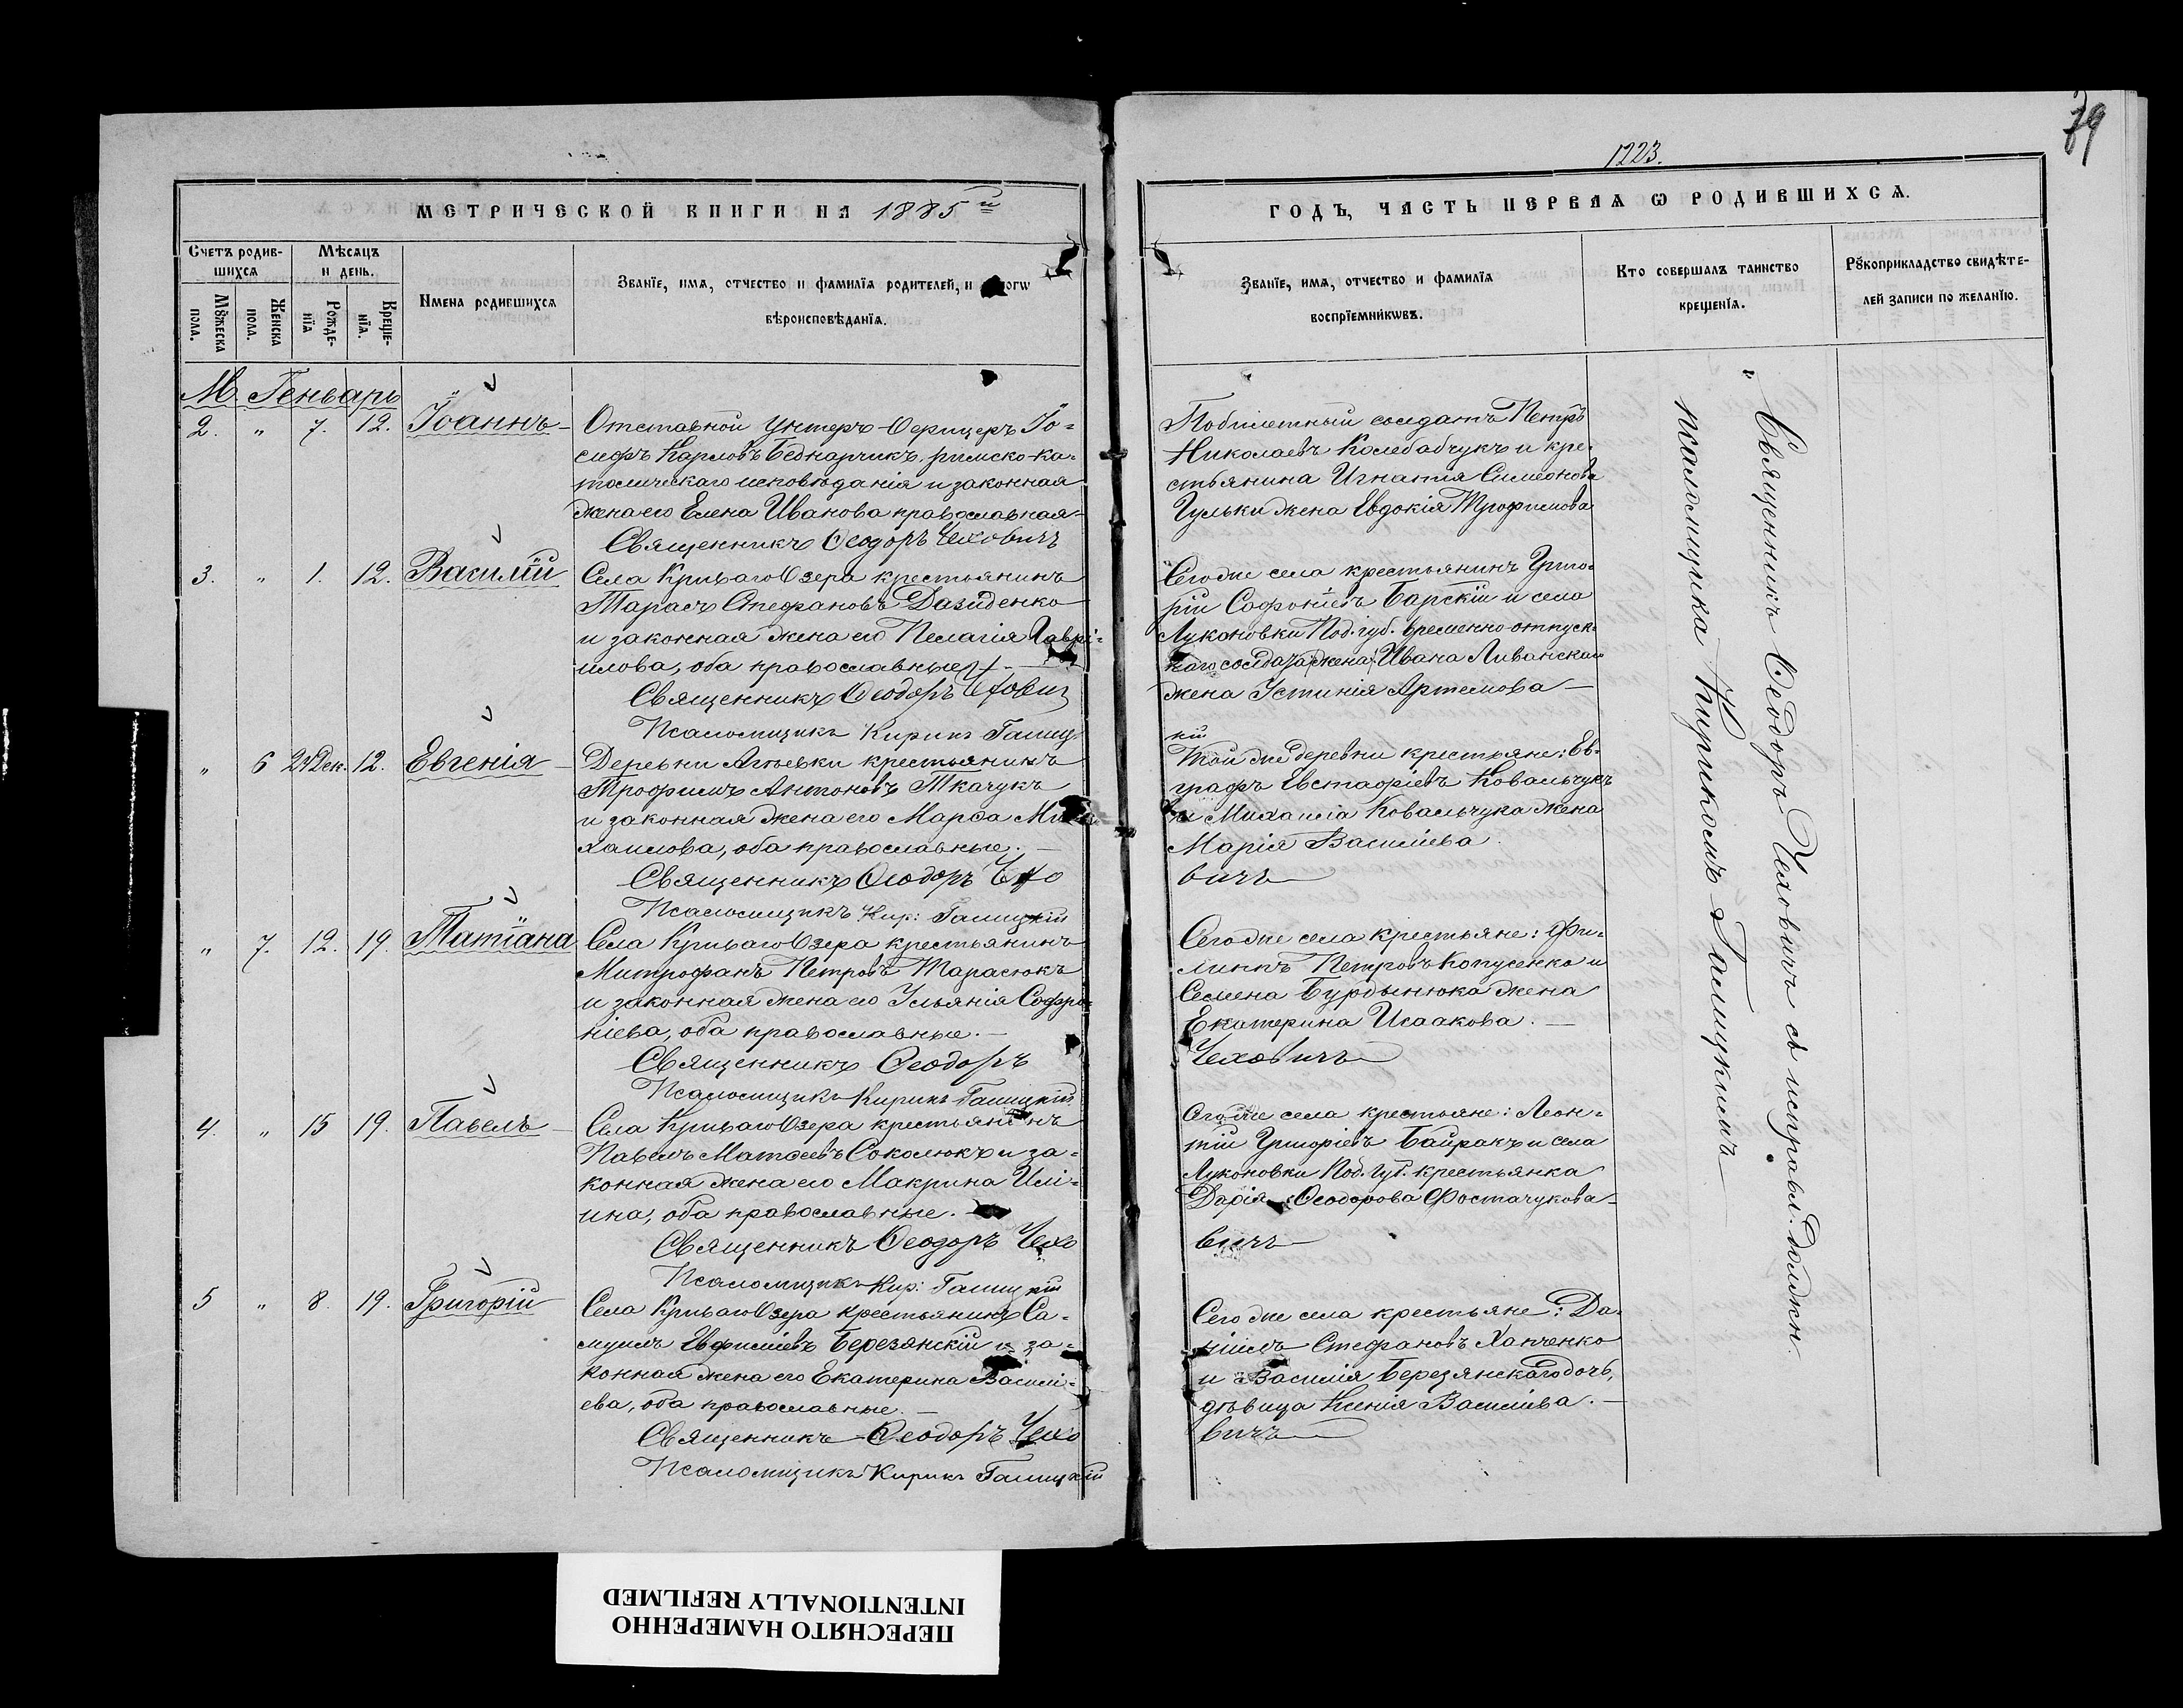 79
1223.
МЕТРИЧЕСКОЙ КНИГИ НА 1885й
ГОДЪ, ЧАСТЬ ПЕРВАѦ Ѡ РОДИВШИХСѦ.
Счетъ родив-
шихсѧ
Мѣсѧцъ
и день.
Мꙋжеска
пола.
Женска
пола.
Рожде-
нїѧ
Креще-
нїѧ.
Имена родившихсѧ
Званїе, имѧ, отчество и фамилїѧ родителей, и
вѣроисповѣданїѧ.
Званїе, имѧ, отчество и фамилїѧ
воспрїемникѡвъ.
Кто совершалъ таинство
крещенїѧ.
Рꙋкоприкладство свидѣте-
лей записи по желанїю.
М. Генварь
2. " 7. 12. Іоаннъ
Отставной унтеръ-офицеръ Іо-
сифъ Карловъ Беднарчикъ, римско-ка-
толическаго исповѣданія и законная
жена его Елена Иванова православная
Священникъ Ѳеодоръ Чеховичъ
Побилетный солдатъ Петръ
Николаевъ Колебабчукъ и кре-
стьянина Игнатія Симеонова
Гульки жена Евдокія Трофимова
3. " 1. 12. Василій
Села Криваго Озера крестьянинъ
Тарасъ Стефановъ Давиденко
и законная жена его Пелагія Гаврі-
илова, оба православные
Священникъ Ѳеодоръ Чехович
Псаломщикъ Кирикъ Галиц
Тогоже села крестьянинъ Григо-
рій Софоніевъ Барскій и села
Лукановки Под. губ. временно-отпуск-
наго солдата Ивана Ливанскаго
жена Устинія Артемова
кій
" 6 24 Дек. 12. Евгенія
Деревни Агѣевки крестьянинъ
Трофимъ Антоновъ Ткачукъ
и законная жена его Марѳа Ми-
хаилова, оба православные.
Священникъ Ѳеодоръ Чехо
Псаломщикъ Кир: Галицкій
Той же деревни крестьяне: Ев-
графъ Евстафіевъ Ковальчукъ
и Михаила Ковальчука жена
Марія Василіева.
вичъ
" 7. 12. 19. Татіана
Села Криваго Озера крестьянинъ
Митрофанъ Петровъ Тарасюкъ
и законная жена его Ульянія Софро-
ніева, оба православные.
Священникъ Ѳеодоръ
Псаломщикъ Кирикъ Галицкій
Сегоже села крестьяне: Фи-
липпъ Петровъ Копусенко и
Семена Бурдынюка жена
Екатерина Исаакова.
Чеховичъ
4. " 15 19. Павелъ
Села Криваго Озера крестьянинъ
Павелъ Матѳеевъ Соколюкъ и за-
конная жена его Макрина Илі-
ина, оба православные.
Священникъ Ѳеодоръ Чехо
Псаломщикъ Кир: Галицкій
Сегоже села крестьяне: Леон-
тій Григоріевъ Байракъ и села
Лукановки Под. Губ. крестьянка
Дарія Ѳеодорова Фостачукова
вичъ
5 " 8. 19. Григорій
Села Криваго Озера крестьянинъ Са-
муилъ Евфиміевъ Березянскій и за-
конная жена его Екатерина Василі-
ева, оба православные.
Священникъ Ѳеодоръ Чехо
Псаломщикъ Кирикъ Галицкій
Сегоже села крестьяне: Да-
ніилъ Стефановъ Ханченко
и Василія Березянскаго дочь,
дѣвица Ксенія Василіева.
вичъ
Священникъ Ѳеодоръ Чеховичъ съ исправл. должн.
псаломщика Кирикомъ Галицкимъ
ПЕРЕСНЯТО НАМЕРЕННО
INTENTIONALLY REFILMED